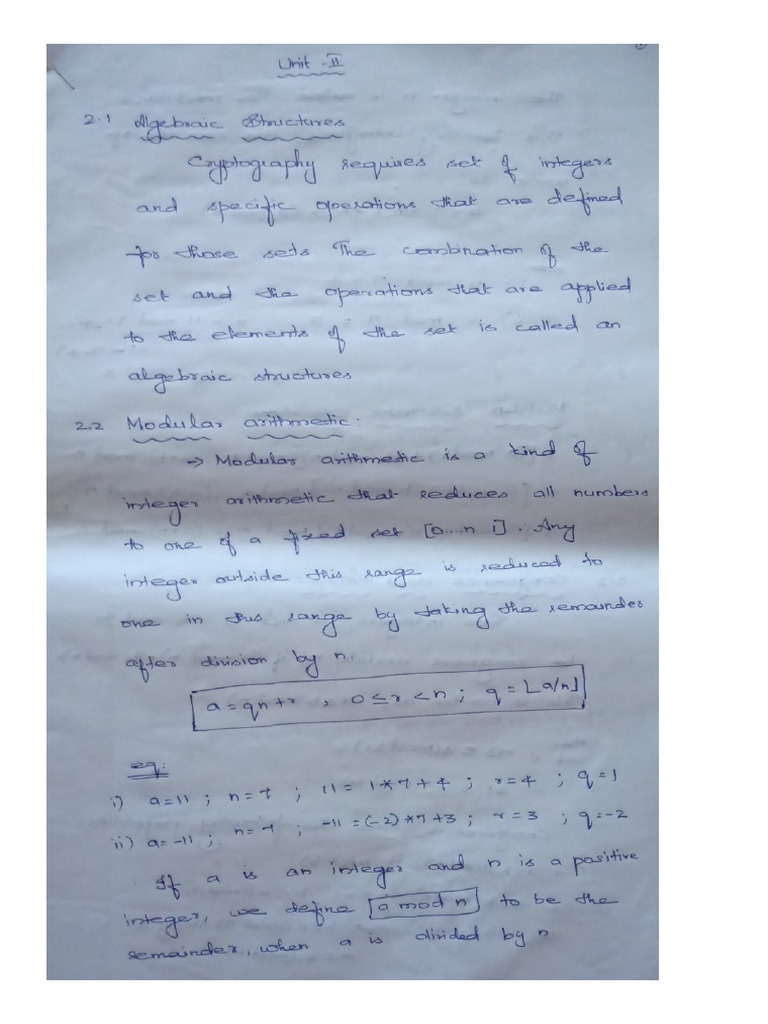 Unit -II
2.1 Algebraic Structures
Cryptography requires set of integers
and specific operations that are defined
for those sets The combination of the
set and the operations that are applied
to the elements of the set is called an
algebraic structures
2.2 Modular arithmetic:
→ Modular arithmetic is a kind of
integer arithmetic that reduces all numbers
to one of a fixed set [0...n 1]. Any
integer outside this range is reduced to
one in this range by taking the remainder
after division by n.
a = qn+r , 0 ≤ r < n ; q = ⌊a/n⌋
eg:
i) a=11 ; n=7 ; 11 = 1*7+4 ; r=4 ; q=1
ii) a=-11 ; n=7 ; -11 = (-2)*7+3 ; r=3 ; q=-2
If a is an integer and n is a positive
integer, we define a mod n to be the
remainder, when a is divided by n